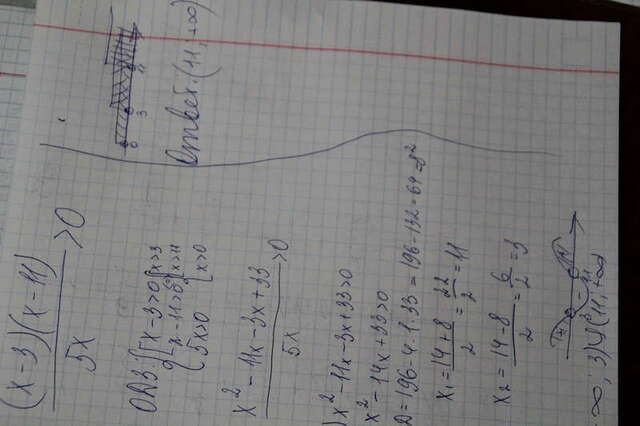 (x-3)(x-11)/5x >0
ОДЗ: { x-3>0 { x>3
x-11>0 { x>11
5x>0 { x>0
x²-11x-3x+33/5x >0
) x²-11x-3x+33>0
x²-14x+33>0
D=196-4·1·33=196-132=64=8²
x₁=14+8/2=22/2=11
x₂=14-8/2=6/2=3
3 11
-∞; 3)U(11,+∞)
0 3 11
Ответ: (11;+∞)